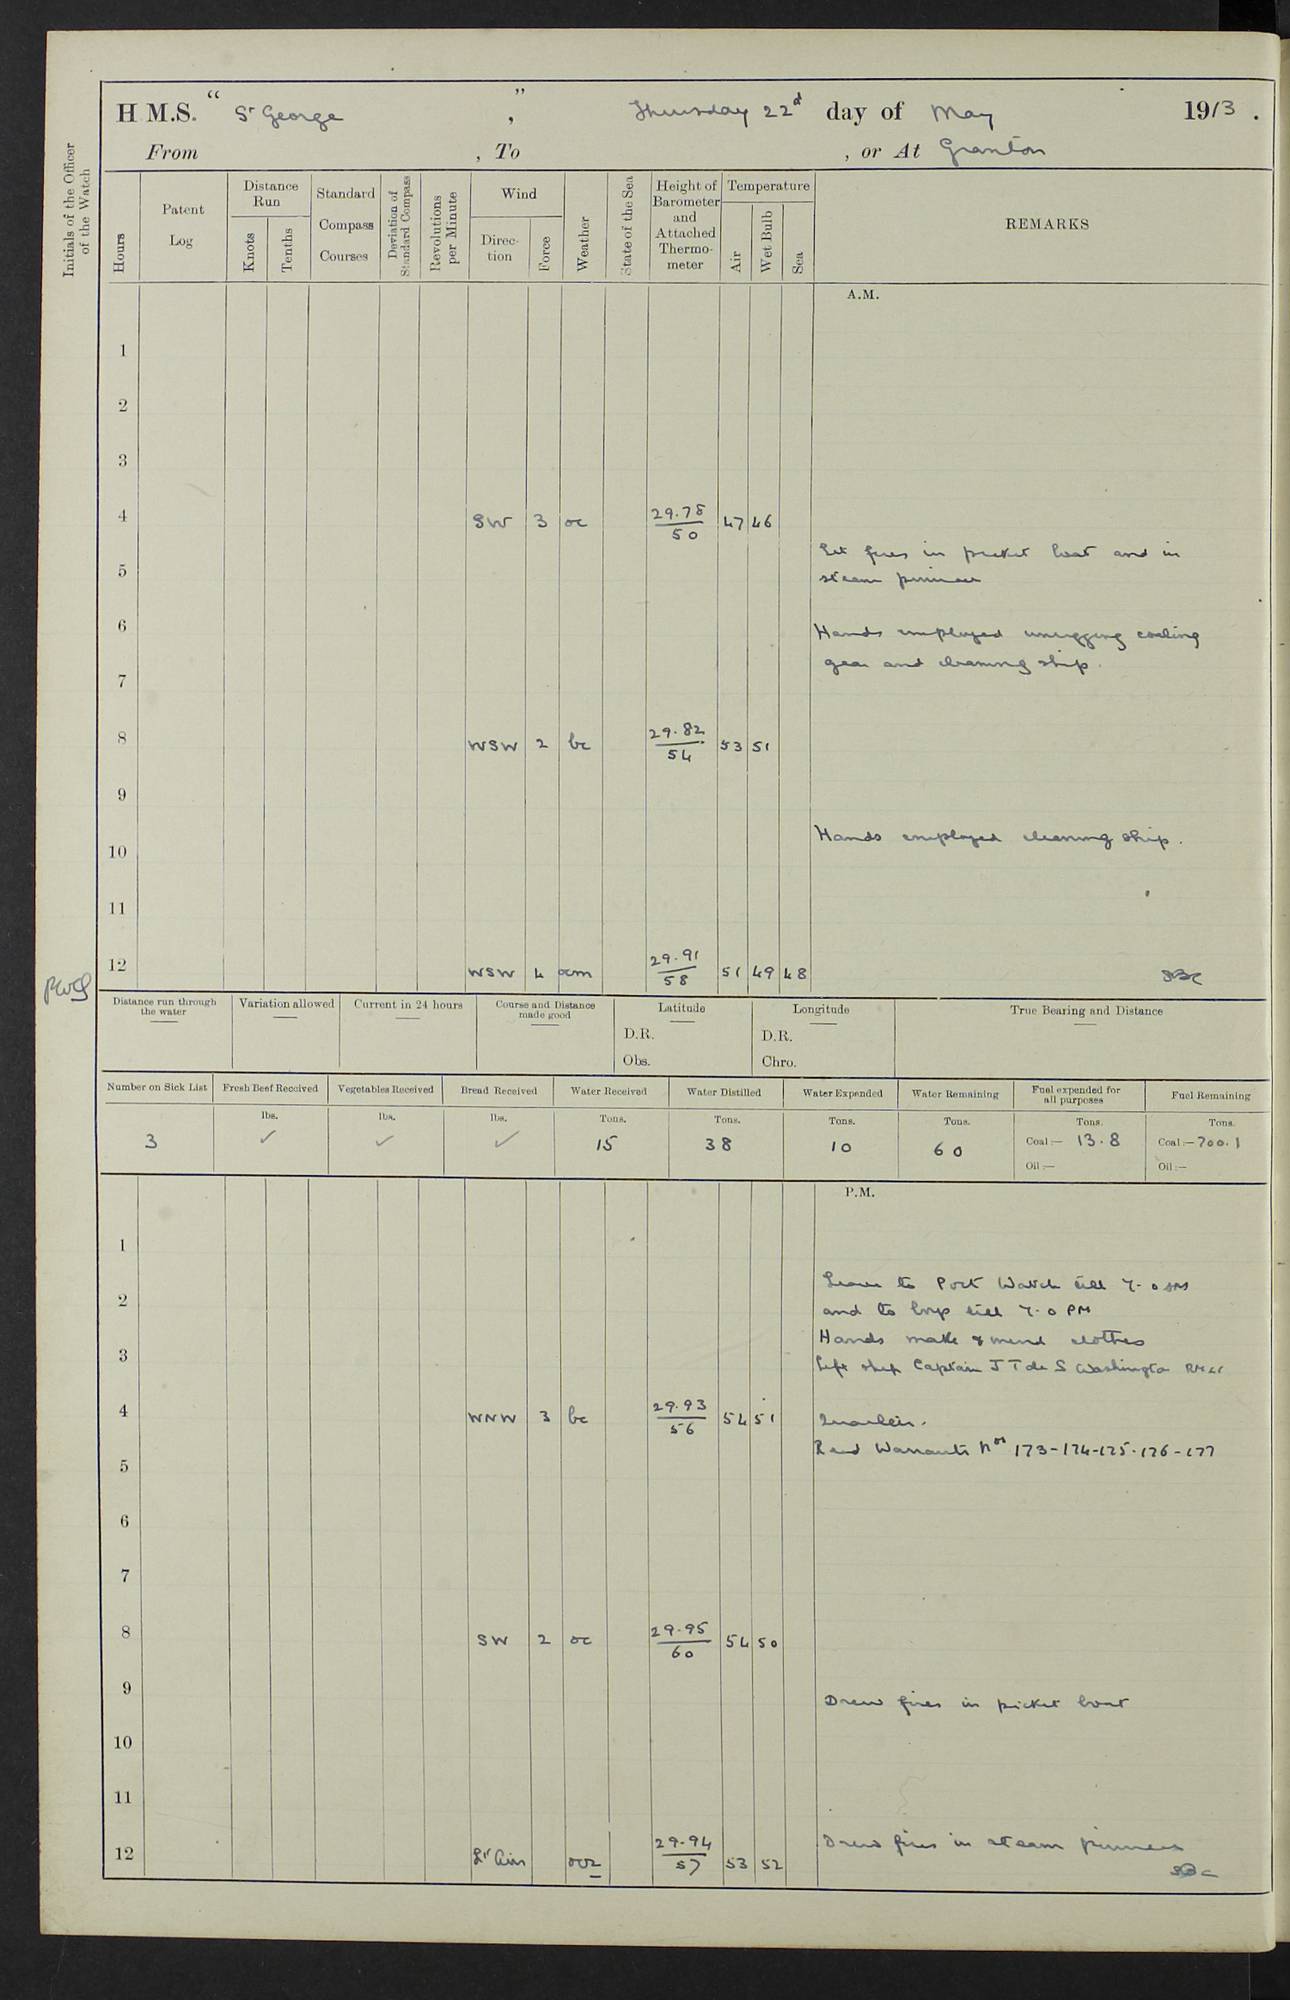 H.M.S. " St George " , Thursday 22d day of May 1913 .
From , To , or At Granton
Initials of the Officer of the Watch
Hours
Patent Log
Distance Run
Knots
Tenths
Standard Compass Courses
Deviation of Standard Compass
Revolutions per Minute
Wind
Direc- tion
Force
Weather
State of the Sea
Height of Barometer and Attached Thermo- meter
Temperature
Air
Wet Bulb
Sea
REMARKS
A.M.
1
2
3
4 SW 3 oc 29.78 50 47 46
Lit fires in picket boat and in
5
steam pinnace
6 Hands employed unrigging coaling
gear and cleaning ship.
7
8 WSW 2 bc 29.82 54 53 51
9
Hands employed cleaning ship.
10
11
12 WSW 4 ocm 29.91 58 51 49 48
Distance run through the water
Variation allowed
Current in 24 hours
Course and Distance made good
Latitude
D.R.
Obs.
Longitude
D.R.
Chro.
True Bearing and Distance
Number on Sick List
3
Fresh Beef Received
lbs.
✓
Vegetables Received
lbs.
✓
Bread Received
lbs.
✓
Water Received
Tons.
15
Water Distilled
Tons.
38
Water Expended
Tons.
10
Water Remaining
Tons.
60
Fuel expended for all purposes
Tons.
Coal:— 13.8
Oil:—
Fuel Remaining
Tons.
Coal:— 700.1
Oil:—
P.M.
1
Leave to Port Watch till 7-0 AM
2
and to boys till 7-0 PM
Hands make & mend clothes
3
Left ship Captain J T de S Washington
4 WNW 3 bc 29.93 56 54 51 Quarters.
Read Warrants Nos 173-174-175-176-177
5
6
7
8 SW 2 oc 29.95 60 54 50
9 Drew fires in picket boat
10
11
12 Lt Airs 29.94 57 53 52 Drew fires in steam pinnace